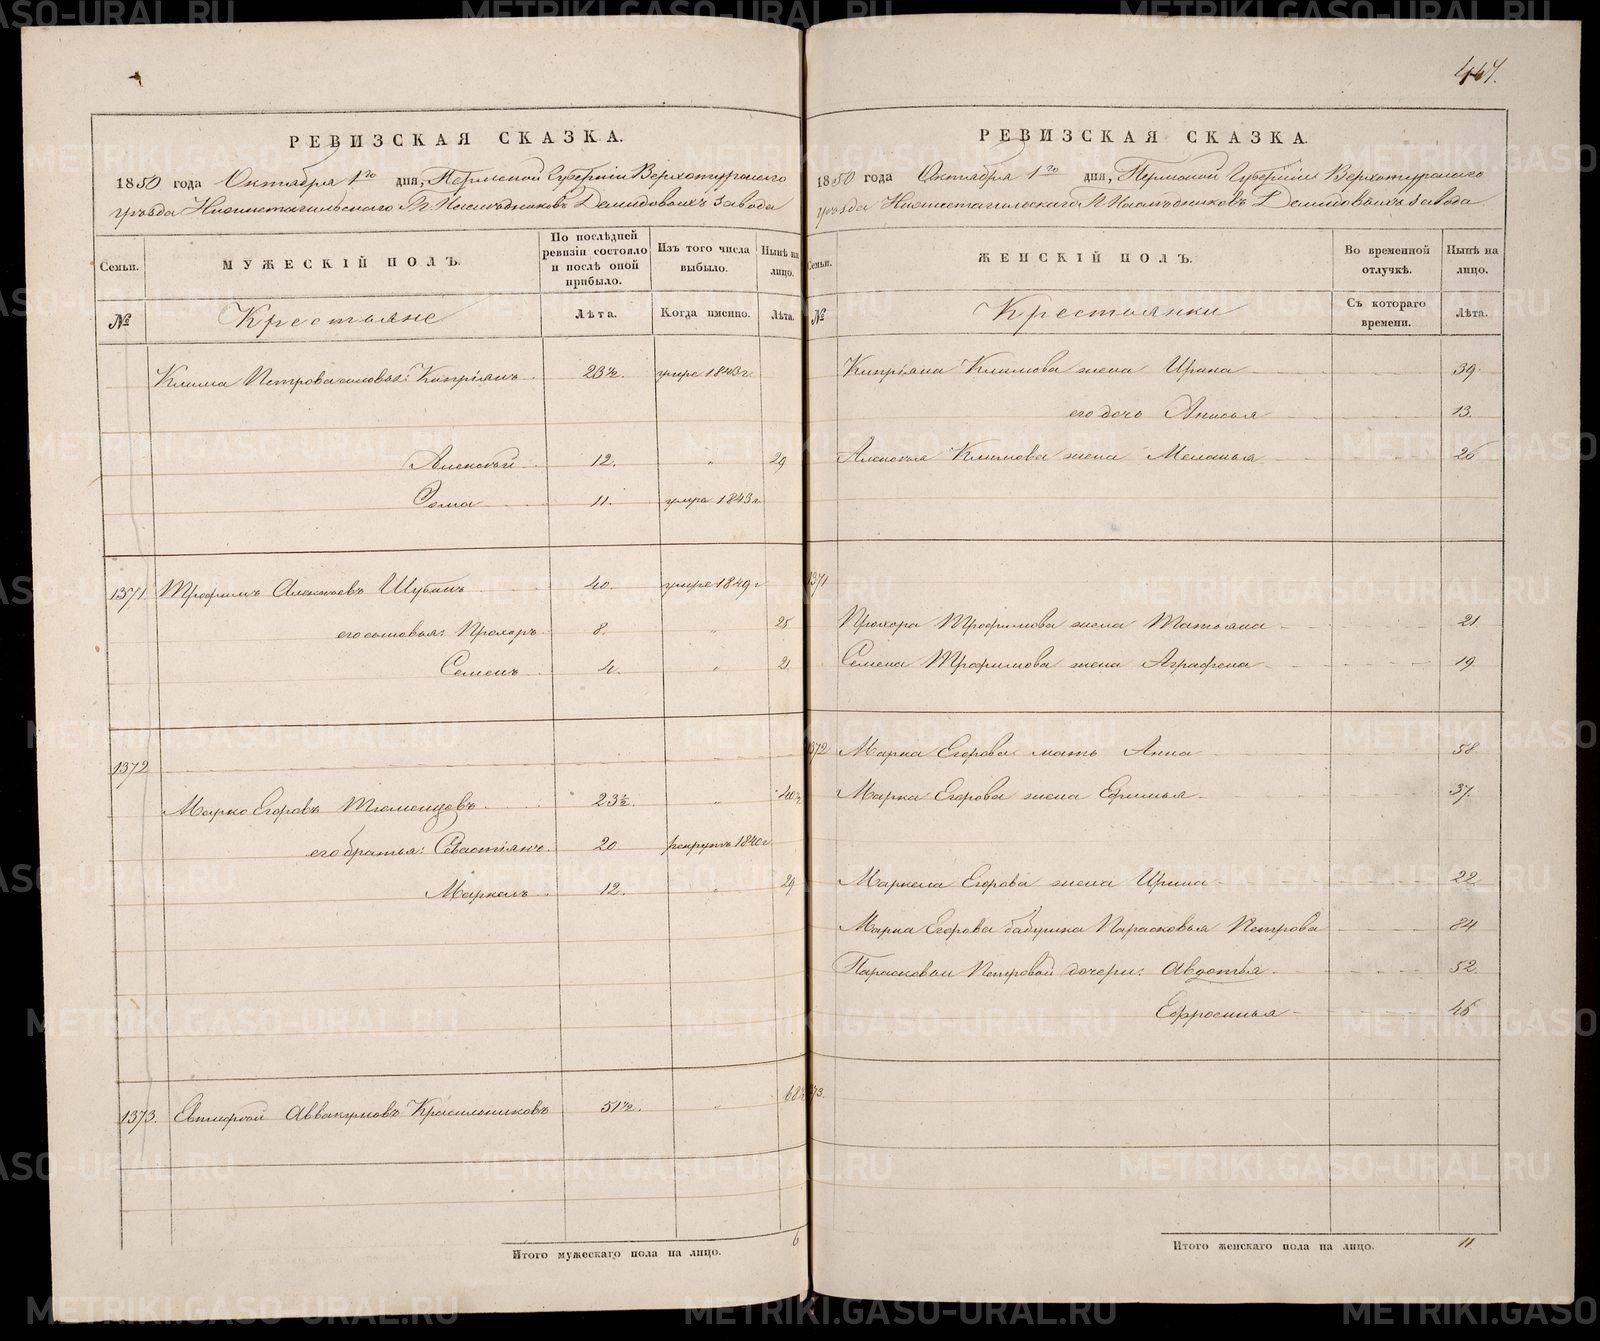 447.
РЕВИЗСКАЯ СКАЗКА.
1850 года Октября 1го дня, Пермской Губерніи Верхотурскаго
уѣзда Нижнетагильскаго Гг. Наслѣдниковъ Демидовыхъ завода
Семьи.
МУЖЕСКІЙ ПОЛЪ.
По послѣдней ревизіи состояло и послѣ оной прибыло.
Изъ того числа выбыло.
Нынѣ на лицо.
№
Крестьяне
Лѣта.
Когда именно.
Лѣта.
Клима Петрова сыновья: Кипріянъ 23½. умре 1843 г.
Алексѣй 12. " 29
Сома 11. умре 1843 г.
1371 Трофимъ Алексѣевъ Шубинъ 40. умре 1849 г.
его сыновья: Прохоръ 8. " 25
Семенъ 4. " 21
1372
Марко Егоровъ Тюменцовъ 23½. " 40½
его братья: Севастіянъ 20 рекрутъ 1840 г.
Маркелъ 12. " 29
1373. Евтифей Аввакумовъ Красильниковъ 51½. " 68½
Итого мужескаго пола на лицо. 6
РЕВИЗСКАЯ СКАЗКА.
1850 года Октября 1го дня, Пермской Губерніи Верхотурскаго
уѣзда Нижнетагильскаго Гг. Наслѣдниковъ Демидовыхъ завода
Семьи.
ЖЕНСКІЙ ПОЛЪ.
Во временной отлучкѣ.
Нынѣ на лицо.
№
Крестьянки
Съ котораго времени.
Лѣта.
Кипріяна Климова жена Ирина 39.
его дочь Анисья 13.
Алексѣя Климова жена Меланья 26
1371
Прохора Трофимова жена Татьяна 21
Семена Трофимова жена Аграфена 19
1372 Марка Егорова мать Анна 58
Марка Егорова жена Ефимья 37.
Маркела Егорова жена Ирина 22
Марка Егорова бабушка Парасковья Петрова 84
Парасковьи Петровой дочери: Авдотья 52
Ефросинья 46
1373.
Итого женскаго пола на лицо. 11